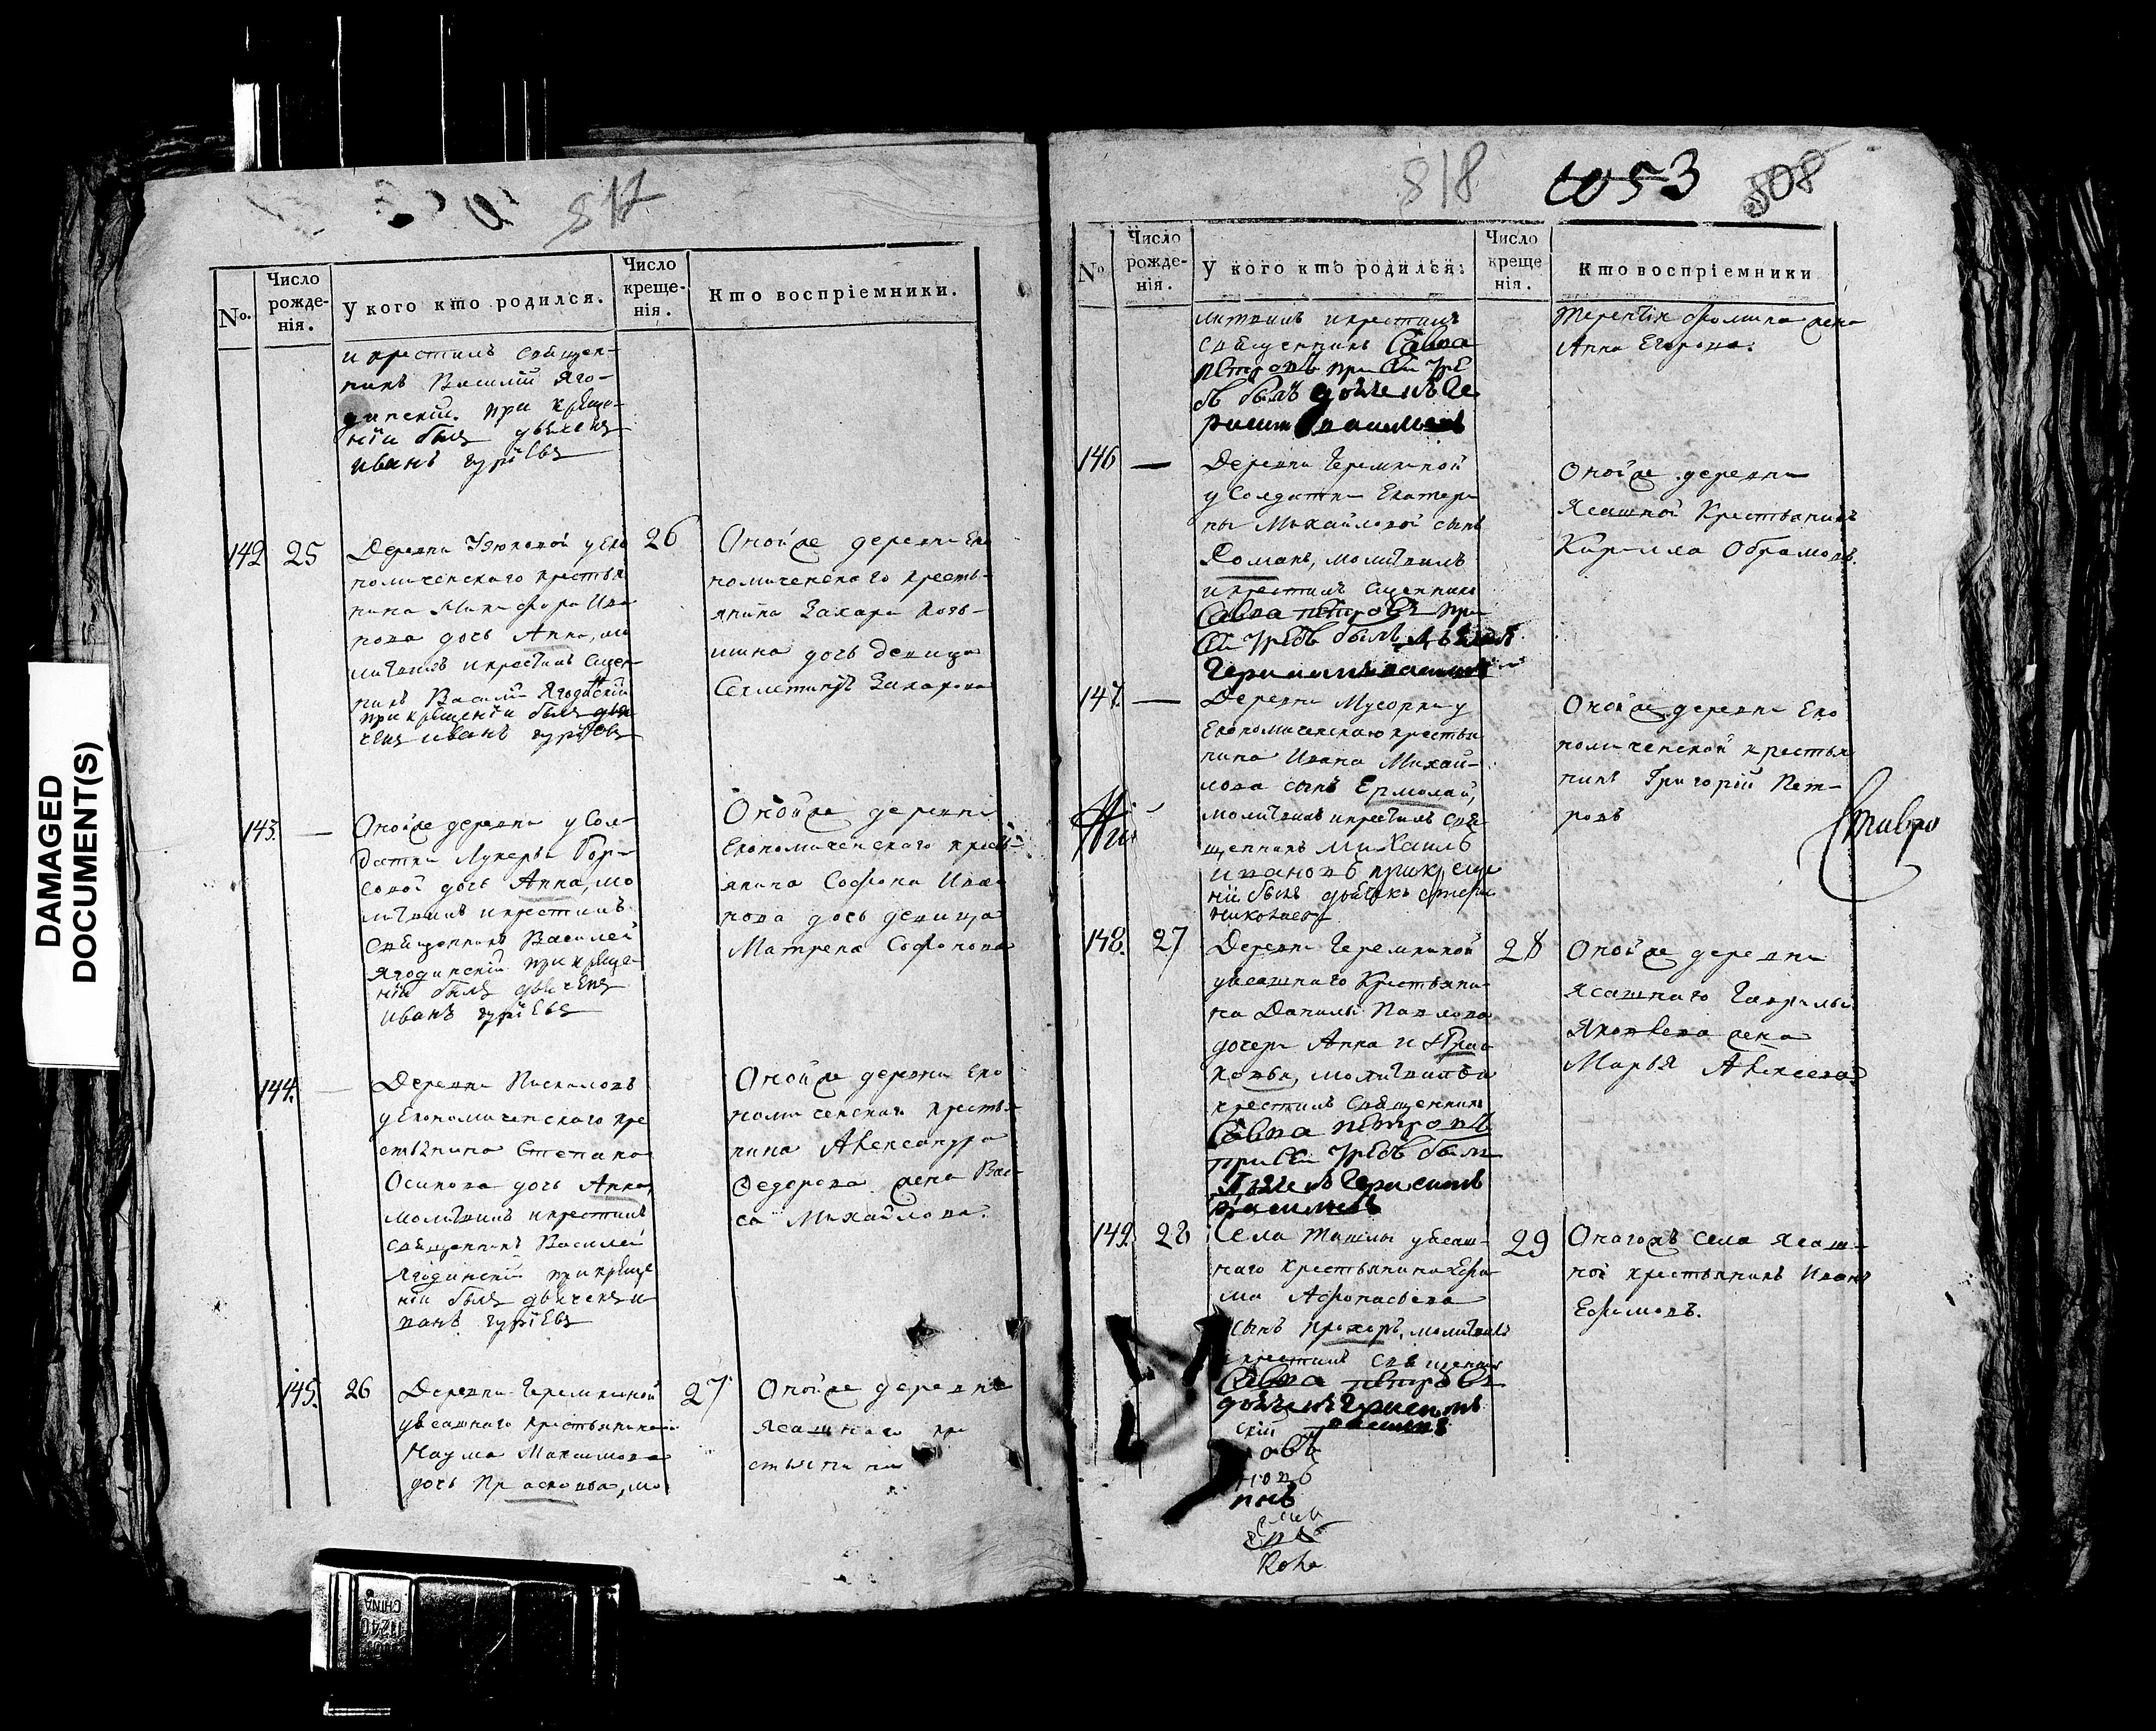 DAMAGED
DOCUMENT(S)
817
No.
Число рожде-нія.
У кого кто родился.
Число креще-нія.
Кто воспріемники.
и крестилъ священ-
никъ Василій Яго-
динскій. при креще-
ніи былъ дьячекъ
иванъ гурїевъ
142 25 26
Деревни у Еко
номическаго крестья
нина Никифора Ива
нова дочь Анна, мо
литвилъ и крестилъ свщен-
никъ Василій Ягодинскій
при крещеніи былъ дья
чекъ иванъ гурїевъ
Оной же деревни Еко
номическаго кресть-
янина Захара Козь-
мина дочь девица
Захарова
143. —
Оной же деревни у Сол-
датки Лукерьи Бор-
совой дочь Анна, мо
литвилъ и крестилъ
священникъ Василей
Ягодинскій при креще-
ніи былъ дьячекъ
иванъ гурїевъ
Оной же деревни
Економическаго кресть-
янина Софона Ива
нова дочь девица
Матрена Софонова
144. —
Деревни
у Економическаго кре
стьянина Степана
Осипова дочь Анна,
молитвилъ и крестилъ
священникъ Василей
Ягодинскій при креще
ніи былъ дьячекъ и
ванъ гурїевъ
Оной же деревни Еко
номическаго крестья
нина Александра
Федорова жена Вас-
са Михайлова.
145. 26 27
Деревни Черемкиной
у Ясашнаго крестьянина
Наума Максимова
дочь Прасковья, мо
Оной же деревни
Ясашнаго кре
стьянина
818 1053 808
No
Число рожде-нія.
У кого кто родился:
Число креще нія.
Кто воспріемники
литвилъ и крестилъ
священникъ Савва
петровъ при сей тре
бѣ былъ дьячекъ Ге
расим василевъ
Терентія Фомина жена
Анна Егорова.
146 —
Деревни Черемкиной
у Солдатки Екатери
ны Михайловой сынъ
Романъ, молитвилъ
и крестилъ сщенникъ
Савва петровъ при
сей требѣ былъ дьячекъ
Герасимъ василевъ
Оной же деревни
Ясашной Крестьянинъ
Кирилла Обрамовъ.
147. —
Деревни Мусорки у
Економическаго крестья
нина Ивана Михай-
лова сынъ Ермолай,
молитвилъ и крестилъ свя
щенникъ Михаилъ
ивановъ при креще
ніи былъ дьячекъ
николаевъ
Оной же деревни Еко
номической крестья
нинъ Григорій Пет-
ровъ
148. 27 28
Деревни Черемкиной
у Ясашнаго Крестьяни
на Данилы Павлова
дочери Анна и Прас
ковья, молитвилъ и
крестилъ священникъ
Савва петровъ
при сей требѣ былъ
дьячекъ Герасимъ
василевъ
Оной же деревни
Ясашнаго Гаврилы
Яковлева жена
Марья Алексеева
149. 28 29
Села Ташлы у Ясаш-
наго крестьянина Ефи
ма Афонасьева
сынъ прохоръ, молитвилъ
и крестилъ священникъ
Савва петровъ
дьячекъ Герасимъ
василевъ
Онагожъ села Ясаш-
ной крестьянинъ Иванъ
Ефимовъ.
скій